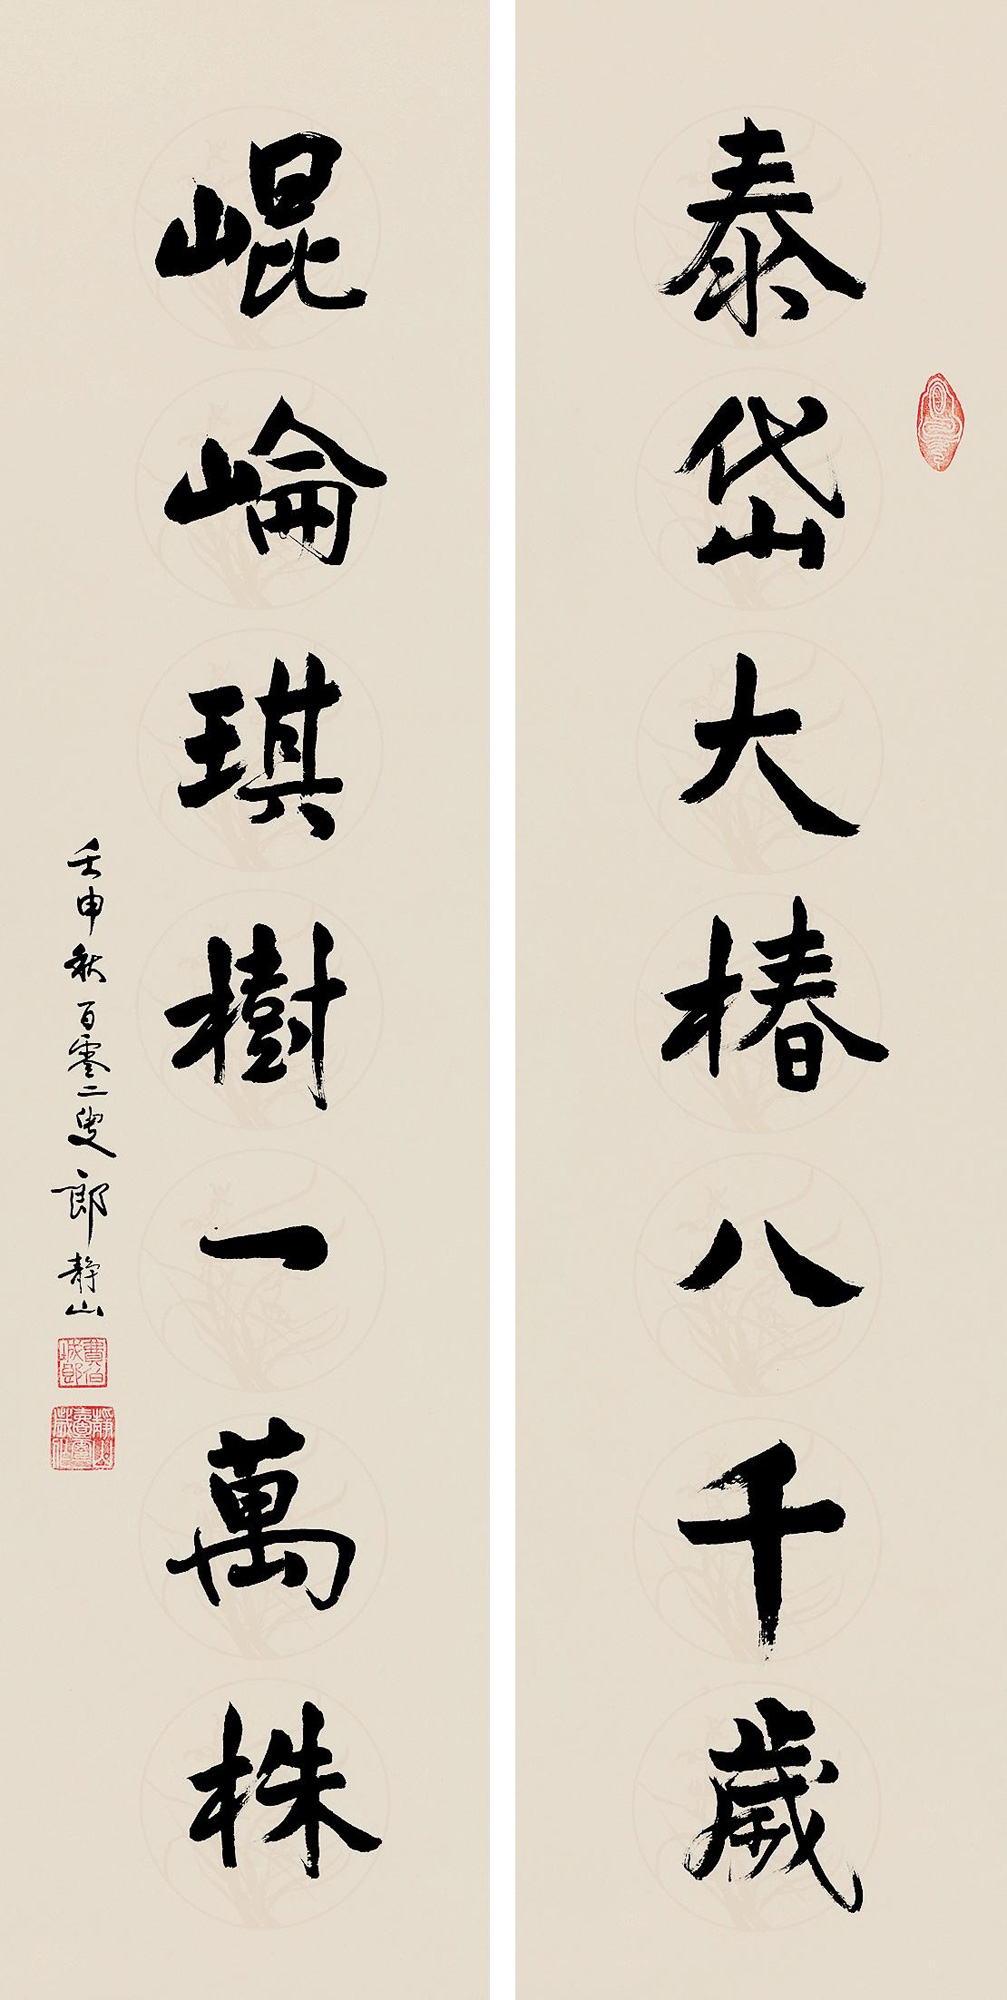 泰岱大椿八千歲
崐崘琪樹一萬株
壬申秋百零二叟郎靜山